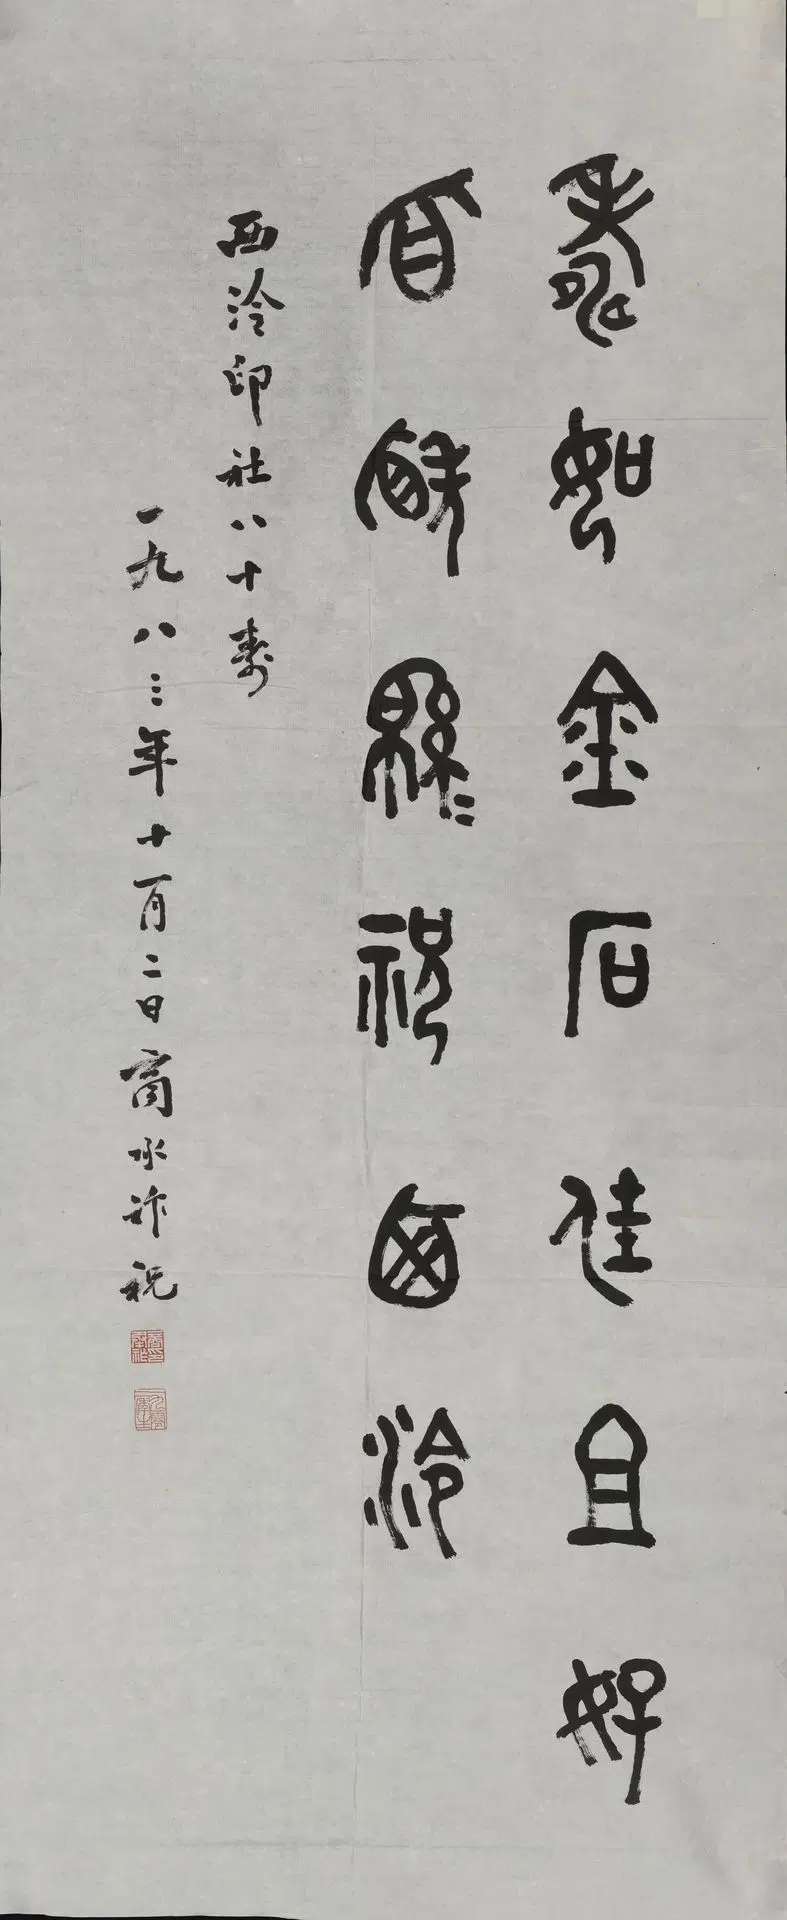 壽如金石佳且好
緜〻祝西泠
西泠印社八十壽
一九八三年十一月二日商承祚祝